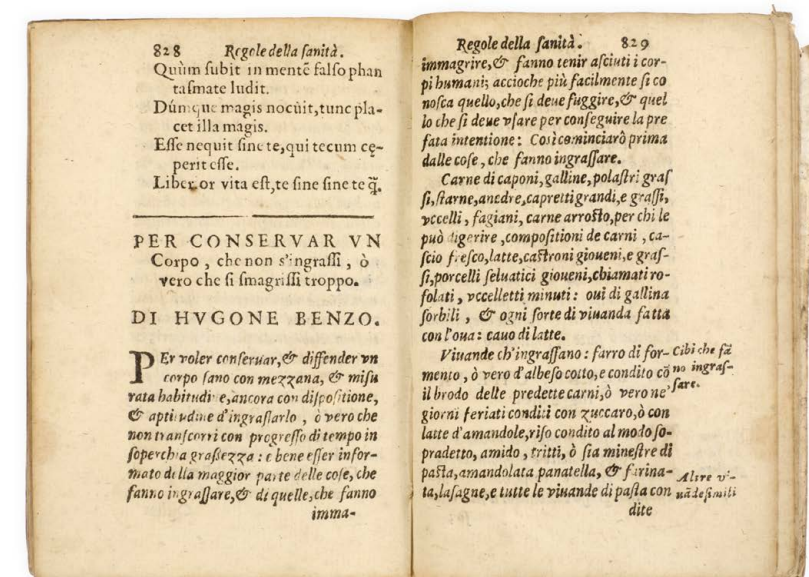 828 Regole della sanità.
Quùm subit in mentẽ falso phan
tasmate ludit.
Dúmque magis nocùit, tunc pla-
cet illa magis.
Esse nequit sine te, qui tecum cę-
perit esse.
Liber, or vita est, te sine sine te q̃.
PER CONSERVAR VN
Corpo, che non s'ingrassi, ò
vero che si smagrissi troppo.
DI HVGONE BENZO.
PEr voler conseruar, & diffender vn
corpo sano con mezzana, & misu
rata habitudine, ancora con dispositione,
& aptitudine d'ingrassarlo, ò vero che
non transcorri con progresso di tempo in
soperchia grassezza: e bene esser infor-
mato della maggior parte delle cose, che
fanno ingrassare, & di quelle, che fanno
imma-
Regole della sanità. 829
immagrire, & fanno tenir asciuti i cor-
pi humani; accioche più facilmente si co
nosca quello, che si deue fuggire, & quel
lo che si deue vsare per conseguire la pre
fata intentione: Così cominciarò prima
dalle cose, che fanno ingrassare.
Carne di caponi, galline, polastri gras
si, starne, anedre, capretti grandi, e grassi,
vccelli, fagiani, carne arrosto, per chi le
può digerire, compositioni de carni, ca-
scio fresco, latte, castroni gioueni, e gras-
si, porcelli seluatici gioueni, chiamati ro-
folati, vccelletti minuti: oui di gallina
sorbili, & ogni sorte di viuanda fatta
con l'oua: cauo di latte.
Viuande ch'ingrassano: farro di for-
mento, ò vero d'albeso cotto, e condito cõ
il brodo delle predette carni, ò vero ne'
giorni feriati conditi con zuccaro, ò con
latte d'amandole, riso condito al modo so-
pradetto, amido, tritti, ò sia minestre di
pasta, amandolata panatella, & farina-
ta, lasagne, e tutte le viuande di pasta con
dite
Cibi che fã
no ingras-
sare.
Altre vi-
uãde simili